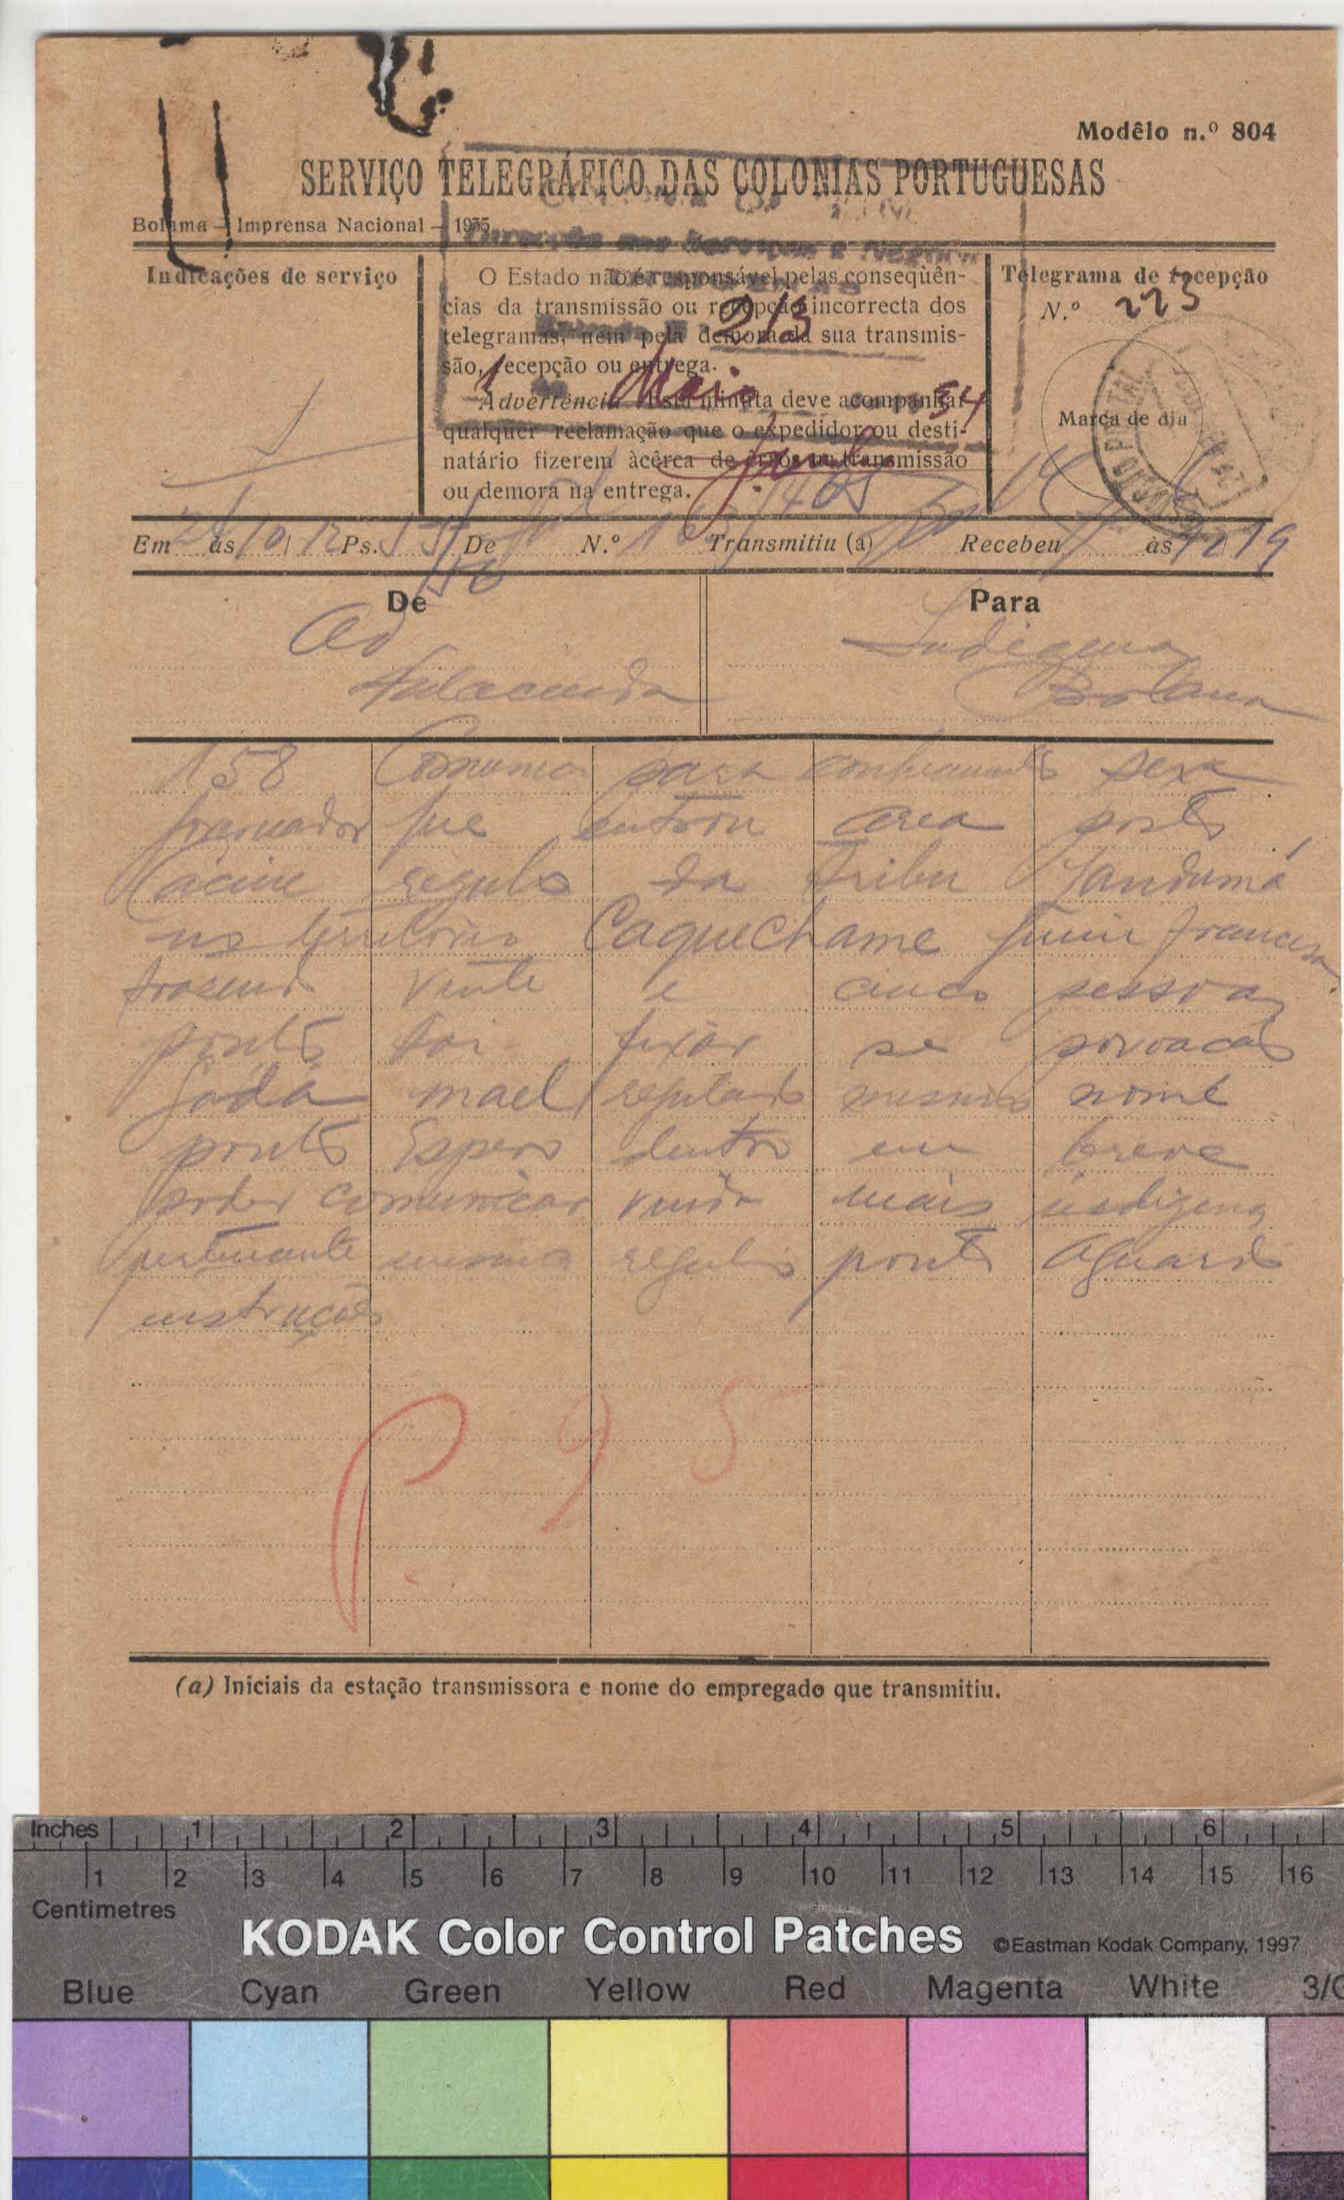 Modêlo n.º 804
SERVIÇO TELEGRÁFICO DAS COLONIAS PORTUGUESAS
Bolama — Imprensa Nacional — 1935
Indicações de serviço
O Estado não é responsável pelas conseqüên-
cias da transmissão ou recepção incorrecta dos
telegramas, nem pela demora da sua transmis-
são, recepção ou entrega.
Advertência — Esta minuta deve acompanhar
qualquer reclamação que o expedidor ou desti-
natário fizerem àcêrca de erros na transmissão
ou demora na entrega.
213
1 Maio 54
Telegrama de recepção
N.º 223
Marca de dia
Em às Ps. De N.º Transmitiu (a) Recebeu às 12 19
De
Para
Ad
Fulacunda
Indigena
Bolama
158 Comunico para conhecimento sexa
governador que entrou area posto
Cacine regulo da tribu Jandumá
no território Caquechame Guiné francesa
trazendo vinte e cinco pessoas
ponto foi fixar se povoação
Gadá mael regulado mesmo nome
ponto Espero dentro em breve
poder comunicar vinda mais indigena
pertencente mesmo regulo ponto Aguardo
instruções
P. 95
(a) Iniciais da estação transmissora e nome do empregado que transmitiu.
Inches 1 2 3 4 5 6
1 2 3 4 5 6 7 8 9 10 11 12 13 14 15 16
Centimetres
KODAK Color Control Patches ©Eastman Kodak Company, 1997
Blue Cyan Green Yellow Red Magenta White